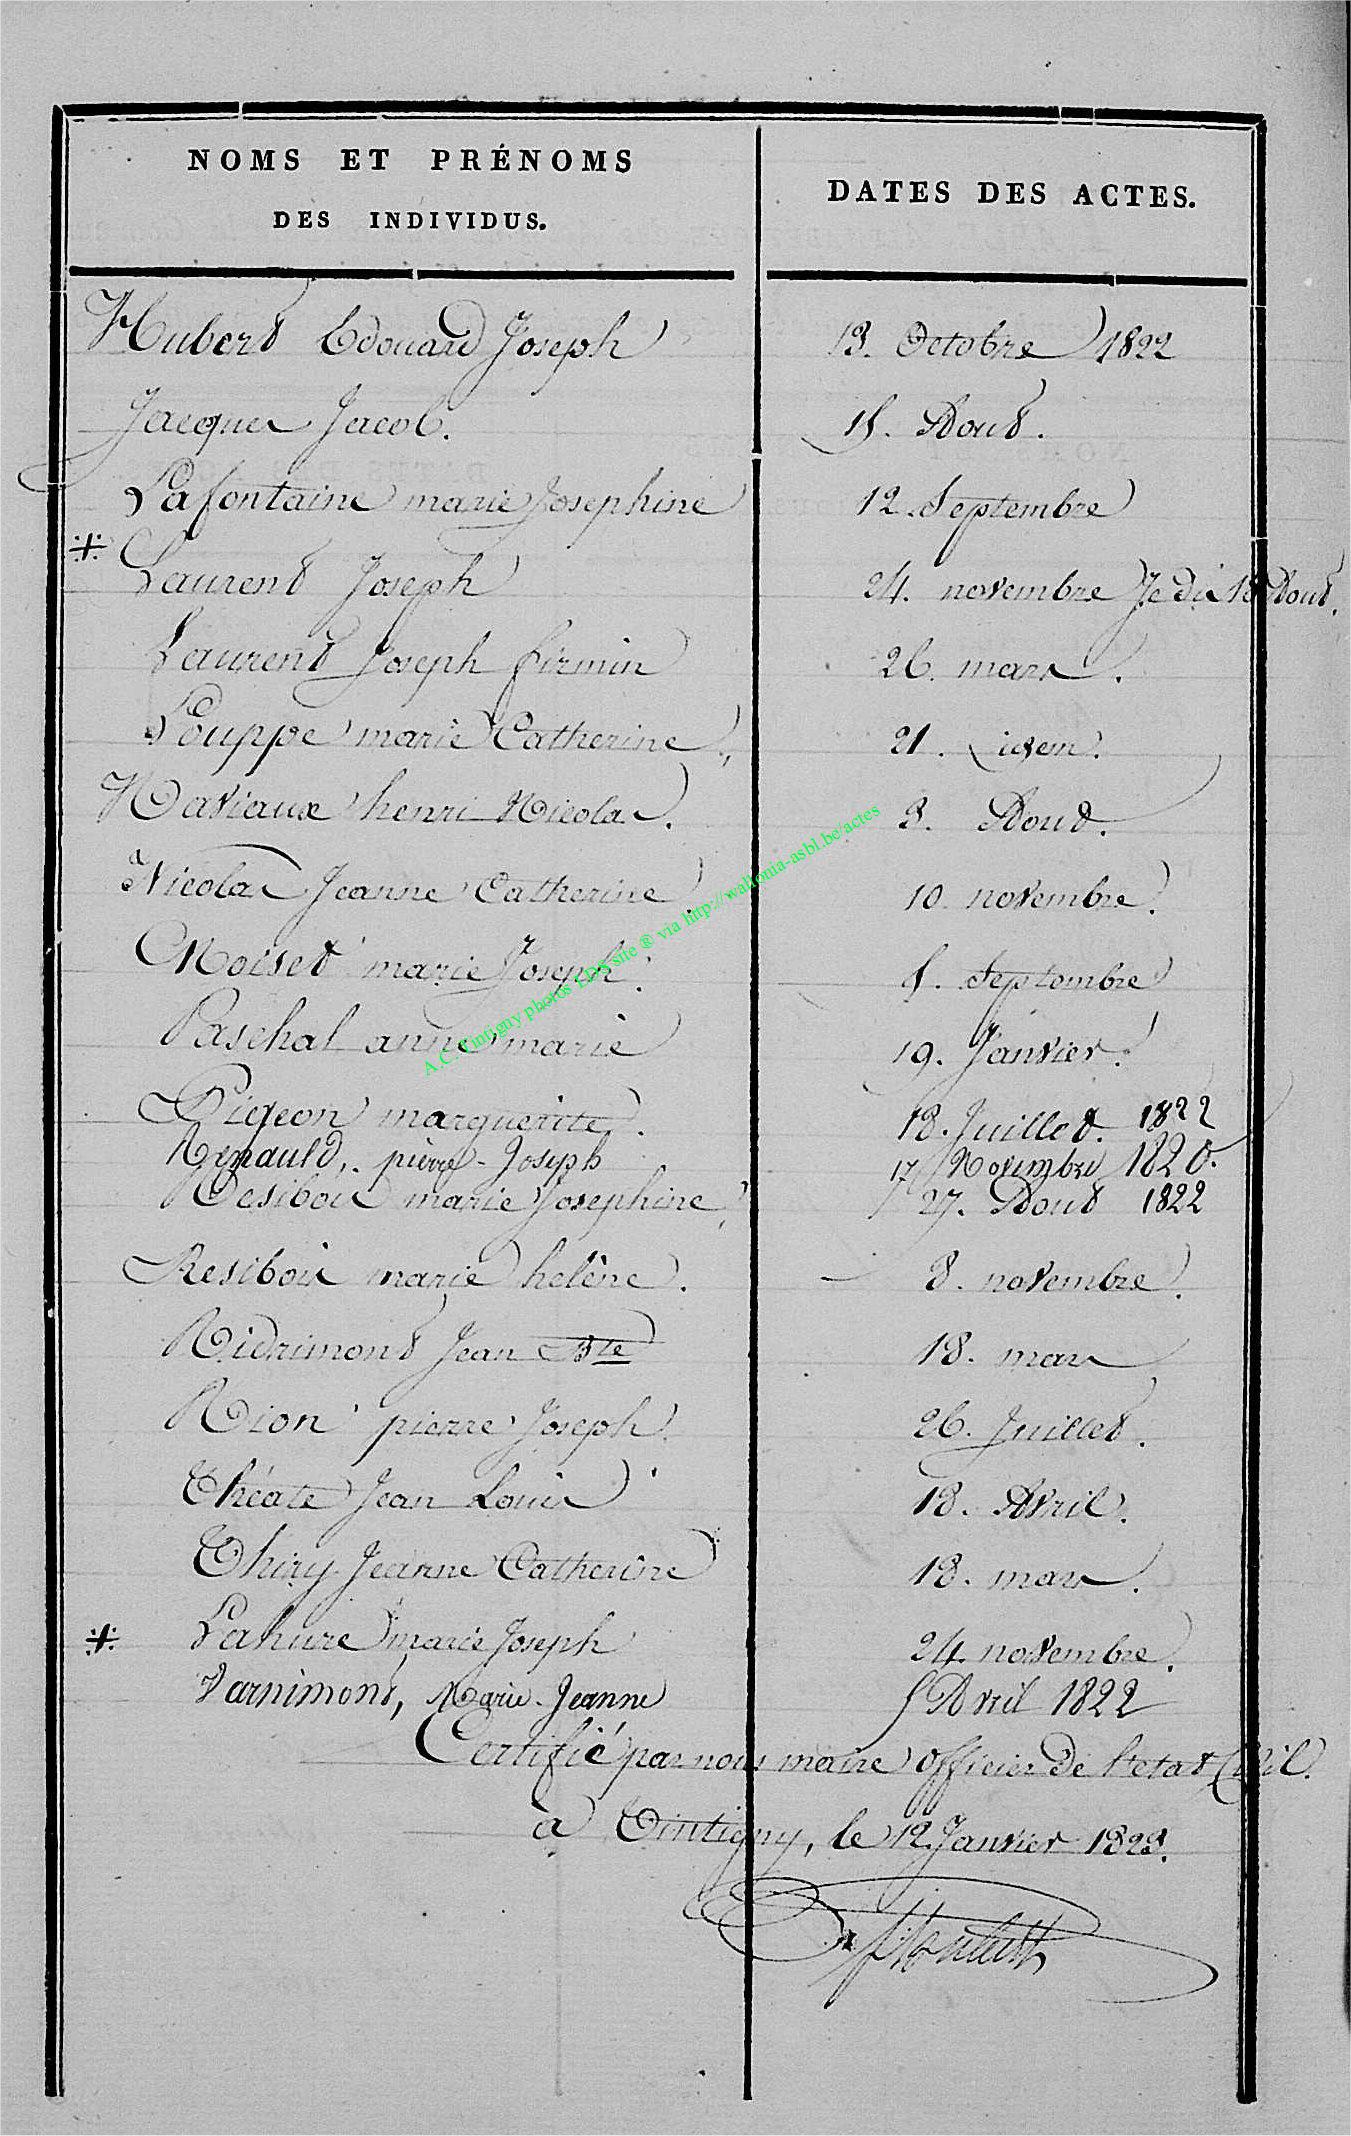 NOMS ET PRÉNOMS
DES INDIVIDUS.
DATES DES ACTES.
Hubert Edouard Joseph 13. Octobre 1822
Jacques Jacob. 15. Aout.
Lafontaine marie Josephine 12. Septembre
Laurent Joseph 24. novembre Je dis 18 Aout.
Laurent Joseph firmin 26. mars.
Louppe marie Catherine, 21. idem.
Naviaux henri Nicolas. 3. Aout.
Nicolas Jeanne Catherine 10. novembre.
Noiset marie Joseph. 5. Septembre
Paschal anne marie 19. Janvier.
Pigeon marguerite. 18. Juillet. 1822
Renauld, pierre-Joseph 17 Novembre 1820.
Resibois marie Josephine, 27. Aout 1822
Resibois marie helène. 8. novembre.
Ridrimont Jean Bte 18. mars
Rion pierre Joseph. 26. Juillet.
Théate Jean Louis 18. Avril.
Thiry Jeanne Catherine 18. mars.
Lahure marie Joseph 24 novembre.
Varnimont, Marie-Jeanne 5 Avril 1822
Certifié par nous maire officier de l'etat Civil.
à Tintigny, le 12 Janvier 1823.
A.C. Tintigny photos LDS site ® via http://wallonia-asbl.be/actes